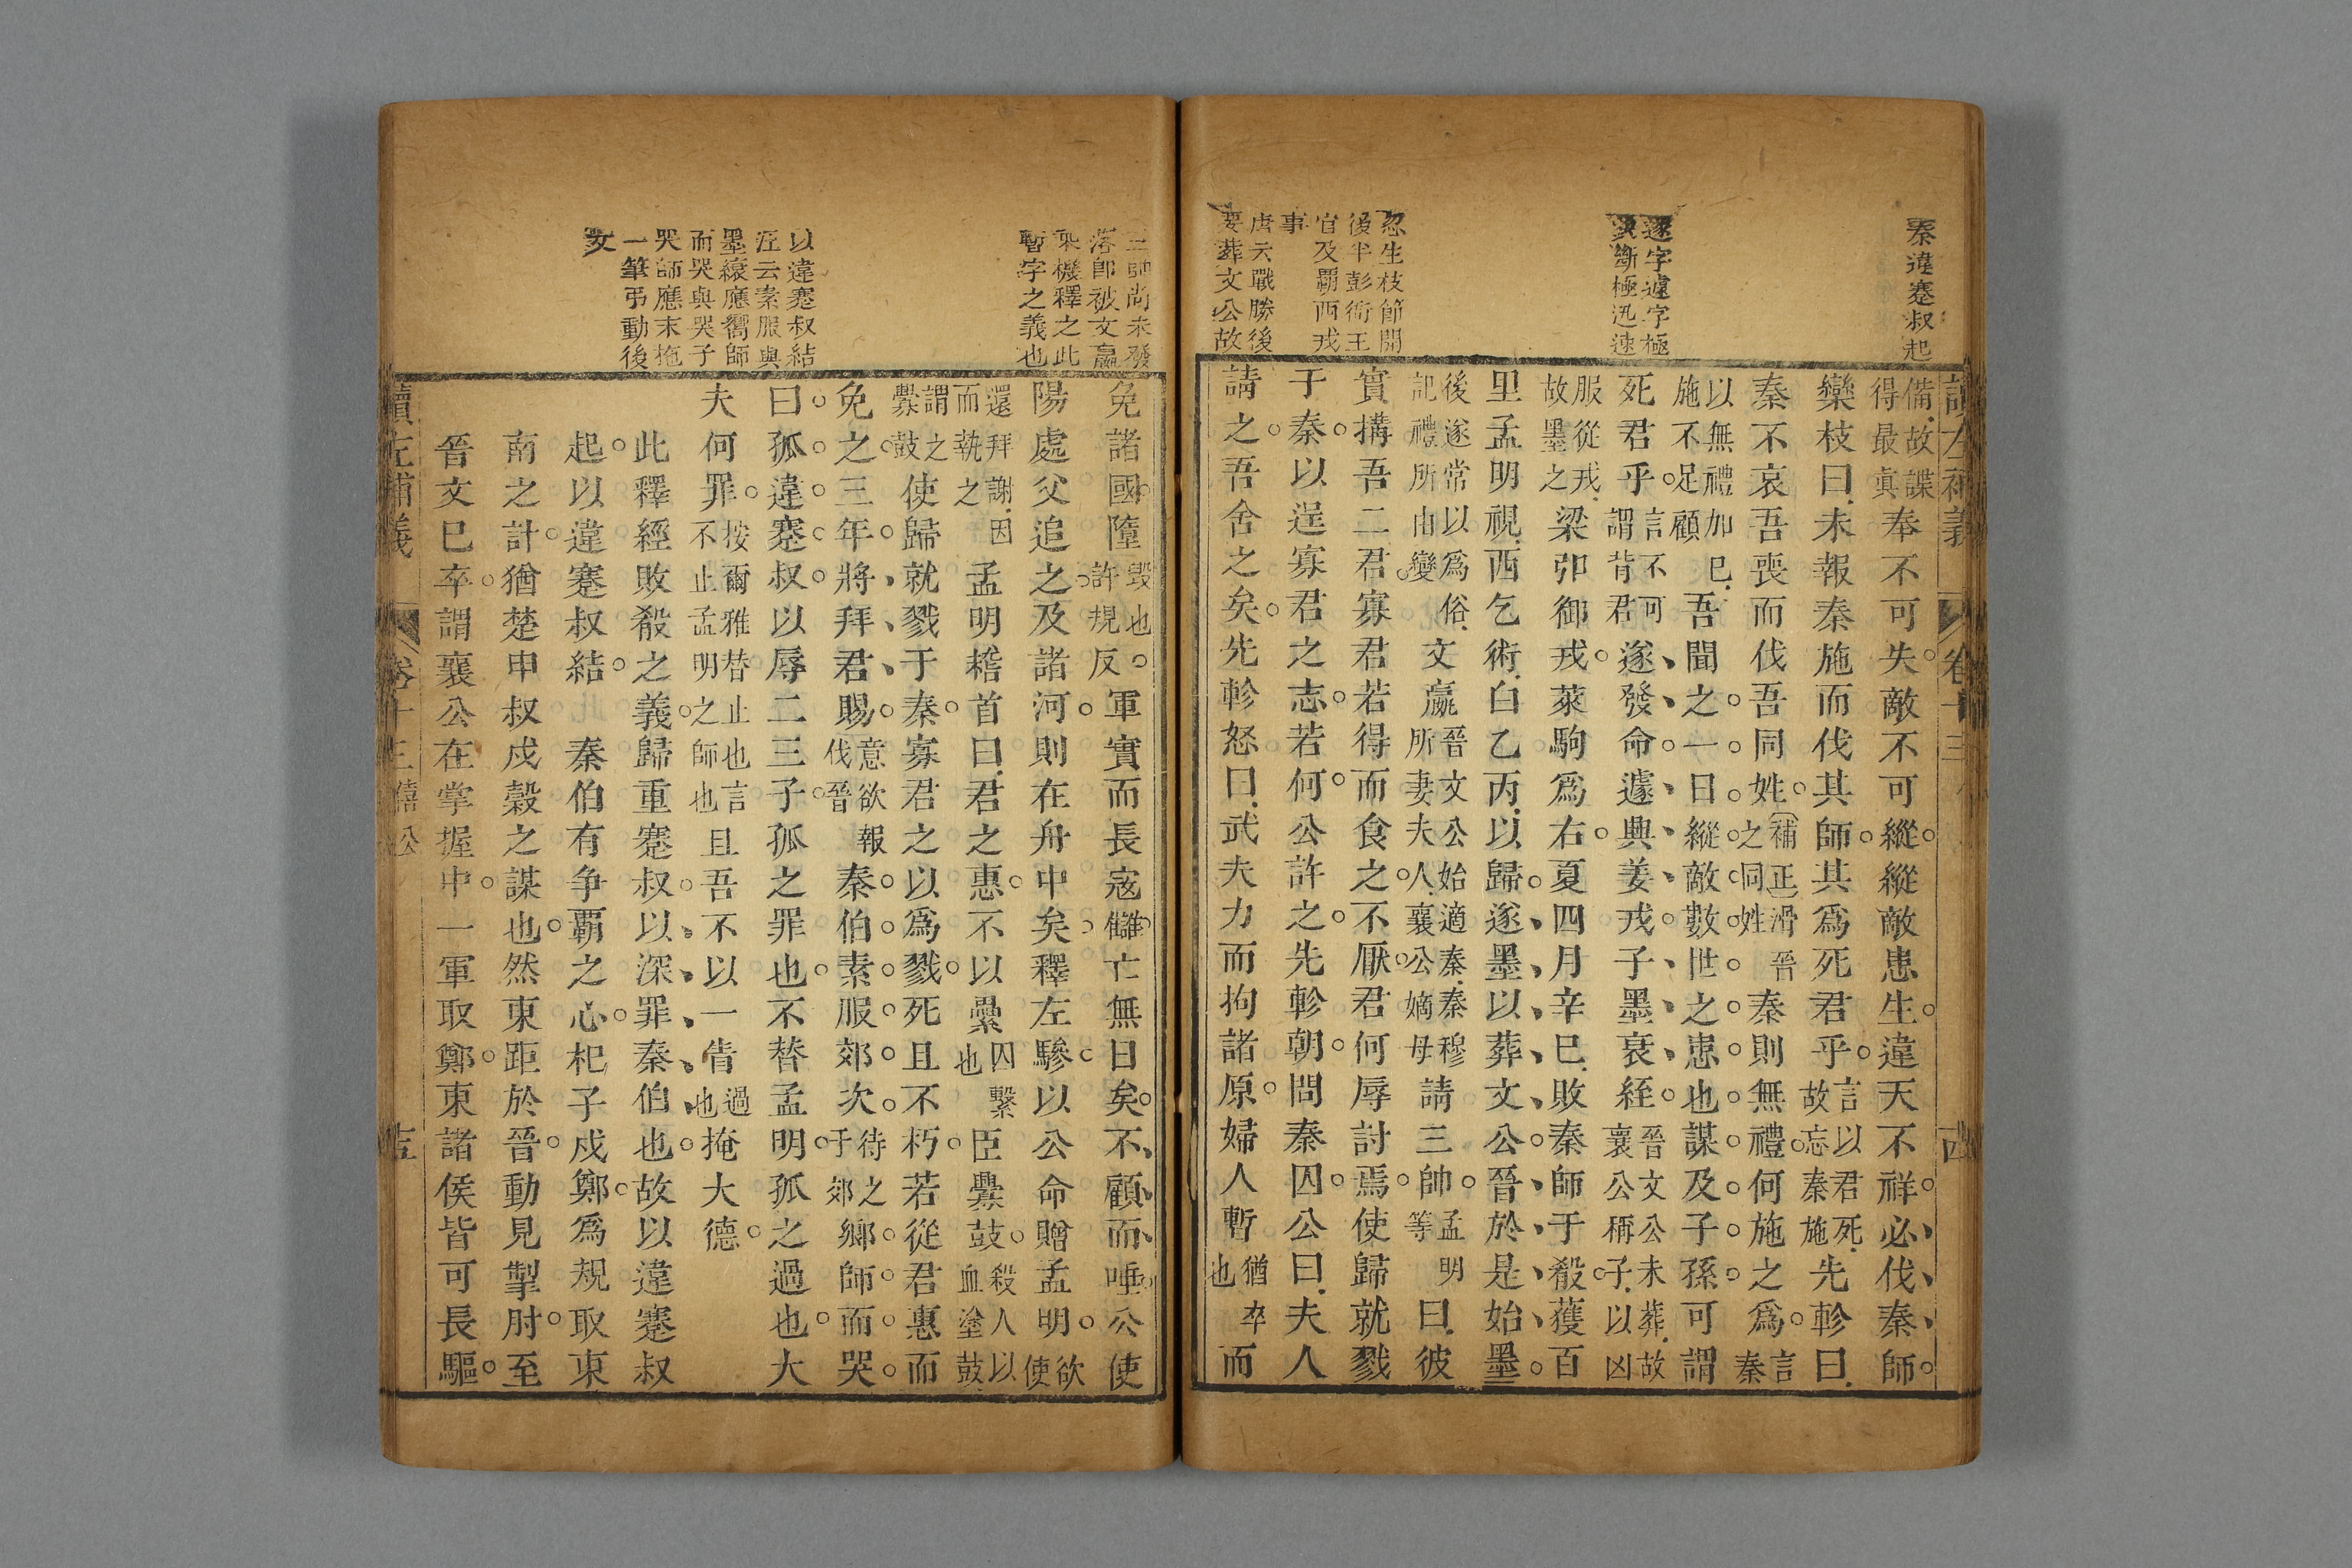 秦違蹇叔起
逐字遽字極
決斷極迅速
忽生枝節開
後半彭衙王
官及霸西戎
事
唐云戰勝後
要葬文公故
備故諜
得最眞
奉不可失敵不可縱縱敵患生違天不祥必伐秦師
欒枝曰未報秦施而伐其師其為死君乎
言以君死
故忘秦施
先軫曰
秦不哀吾喪而伐吾同姓
補正滑晉
之同姓
秦則無禮何施之為
言
秦
以無禮加已
施不足顧
吾聞之一日縱敵數世之患也謀及子孫可謂
死君乎
言不可
謂背君
遂發命遽興姜戎子墨衰絰
晉文公未葬故
襄公稱子以凶
服從戎
故墨之
梁弘御戎萊駒為右夏四月辛巳敗秦師于殽獲百
里孟明視西乞術白乙丙以歸遂墨以葬文公晉於是始墨
後遂常以為俗
記禮所由變
文嬴
晉文公始適秦秦穆
所妻夫人襄公嫡母
請三帥
孟明
等
曰彼
實搆吾二君寡君若得而食之不厭君何辱討焉使歸就戮
于秦以逞寡君之志若何公許之先軫朝問秦囚公曰夫人
請之吾舍之矣先軫怒曰武夫力而拘諸原婦人暫
猶卒
也
而
讀左補義 卷十三 四
三帥尚未發
落卽被文嬴
乘機釋之此
暫字之義也
以違蹇叔結
汪云素服與
墨縗應嚮師
而哭與哭子
哭師應末拖
一筆弔動後
文
免諸國墮
毀也
許規反
軍實而長寇讎亡無日矣不顧而唾公使
陽處父追之及諸河則在舟中矣釋左驂以公命贈孟明
欲
使
還拜謝因
而執之
孟明稽首曰君之惠不以纍
囚繫
也
臣釁鼓
殺人以
血塗鼓
謂之
釁鼓
使歸就戮于秦寡君之以為戮死且不朽若從君惠而
免之三年將拜君賜
意欲報
伐晉
秦伯素服郊次
待之
于郊
鄉師而哭
曰孤違蹇叔以辱二三子孤之罪也不替孟明孤之過也大
夫何罪
按爾雅替止也言
不止孟明之師也
且吾不以一眚
過
也
掩大德
此釋經敗殽之義歸重蹇叔以深罪秦伯也故以違蹇叔
起以違蹇叔結　秦伯有爭霸之心杞子戍鄭為規取東
南之計猶楚申叔戍穀之謀也然東距於晉動見掣肘至
晉文已卒謂襄公在掌握中一軍取鄭東諸侯皆可長驅
讀左補義 卷十三僖公 五